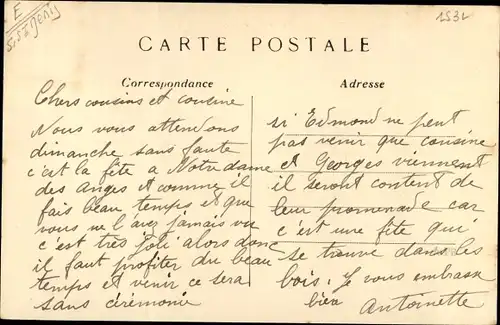 E
S.S.t Denis
1532
CARTE POSTALE
Correspondance
Adresse
Chers cousins et cousine
Nous vous attendons
dimanche sans faute
c'est la fête a Notre dame
des anges et comme il
fais beau temps et que
vous ne l'avez jamais vu
c'est très joli alors donc
il faut profiter du beau
temps et venir ce sera
sans cérémonie
si Edmond ne peut
pas venir que cousine
et Georges viennent
il seront content de
leur promenade car
c'est une fête qui
se trouve dans les
bois. J vous embrass
bien
Antoinette